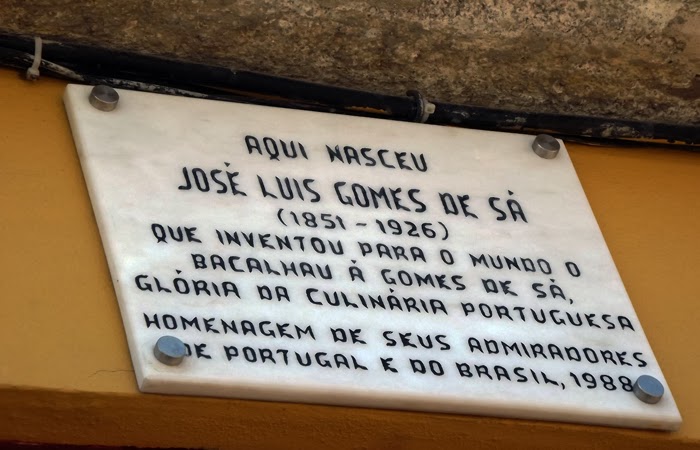 AQUI NASCEU
JOSÉ LUIS GOMES DE SÁ
(1851 - 1926)
QUE INVENTOU PARA O MUNDO O
BACALHAU À GOMES DE SÁ,
GLÓRIA DA CULINÁRIA PORTUGUESA
HOMENAGEM DE SEUS ADMIRADORES
DE PORTUGAL E DO BRASIL, 1988